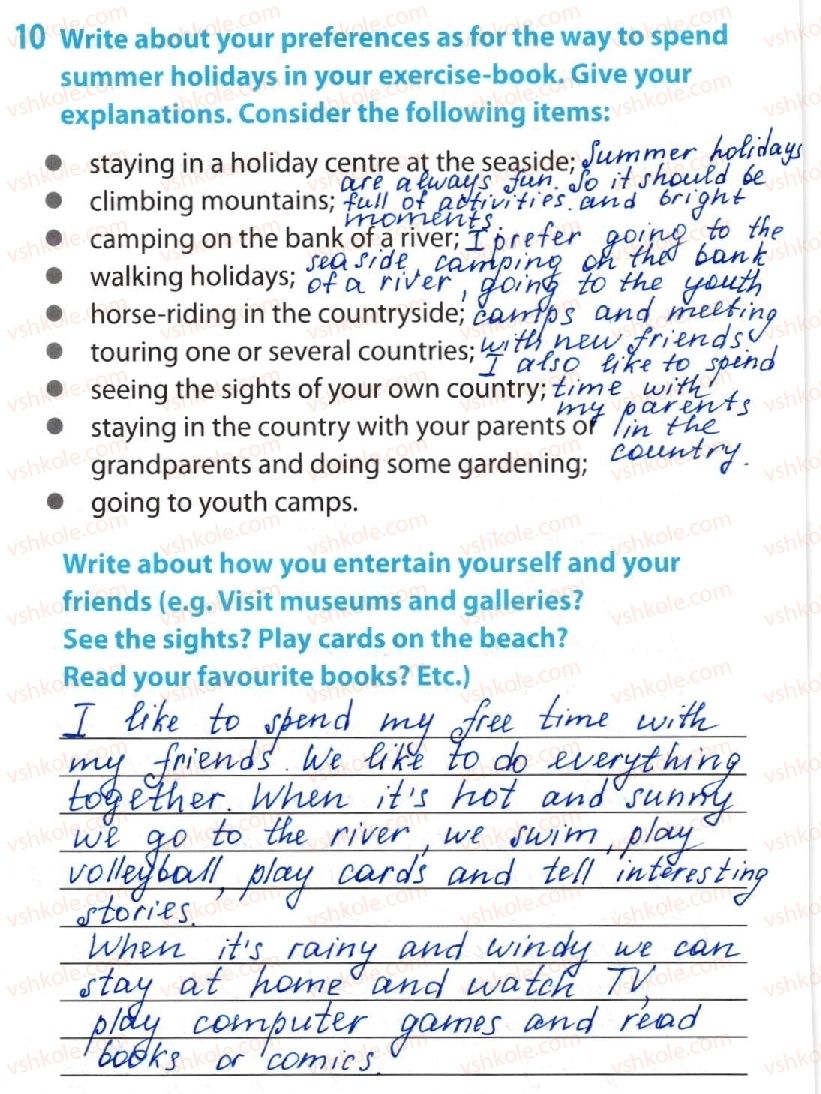 10 Write about your preferences as for the way to spend
summer holidays in your exercise-book. Give your
explanations. Consider the following items:
staying in a holiday centre at the seaside;
climbing mountains;
camping on the bank of a river;
walking holidays;
horse-riding in the countryside;
touring one or several countries;
seeing the sights of your own country;
staying in the country with your parents or
grandparents and doing some gardening;
going to youth camps.
Summer holidays
are always fun. So it should be
full of activities and bright
moments
I prefer going to the
seaside, camping on the bank
of a river, going to the youth
camps and meeting
with new friends
I also like to spend
time with
my parents
in the
country.
Write about how you entertain yourself and your
friends (e.g. Visit museums and galleries?
See the sights? Play cards on the beach?
Read your favourite books? Etc.)
I like to spend my free time with
my friends. We like to do everything
together. When it's hot and sunny
we go to the river, we swim, play
volleyball, play cards and tell interesting
stories.
When it's rainy and windy we can
stay at home and watch TV,
play computer games and read
books or comics.
vshkole.com